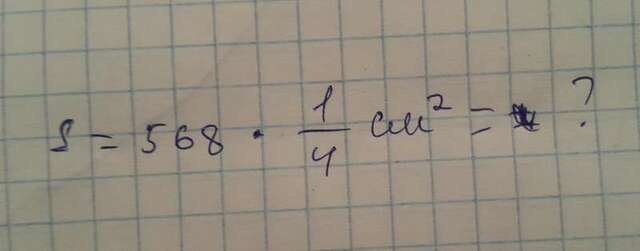 S = 568 · 1/4 см² = ?